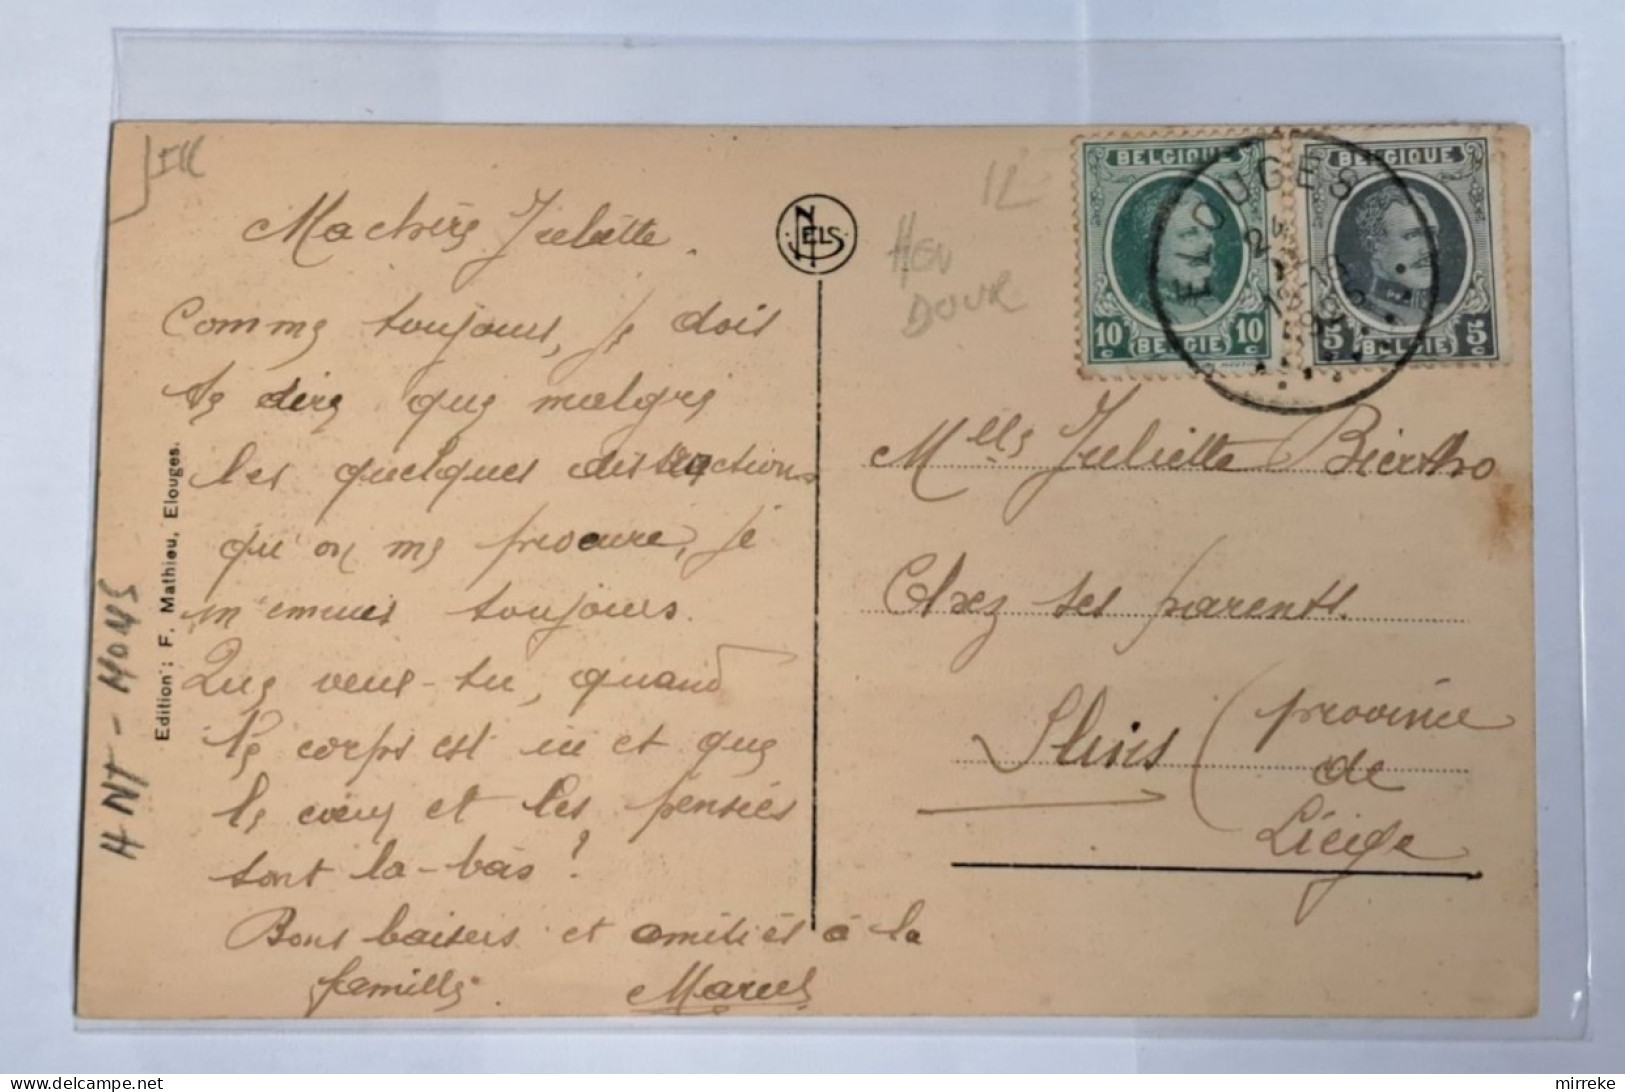 Ma chère Juliette.
Comme toujours, je dois
te dire que malgré
les quelques distractions
qu'on me procure, je
m'ennuis toujours.
Que veux-tu, quand
le corps est ici et que
le cœur et les pensées
sont la-bàs ?
Bons baisers et amitiés à la
famille. Marcel
Edition : F. Mathieu, Elouges.
HNT - MONS
NELS
HEN
DOUR
BELGIQUE
10 c BELGIE 10 c
BELGIQUE
5 c BELGIE 5 c
ELOUGES
Melle Juliette Biertho
Chez ses parents.
Slins (province
de
Liège
mirreke